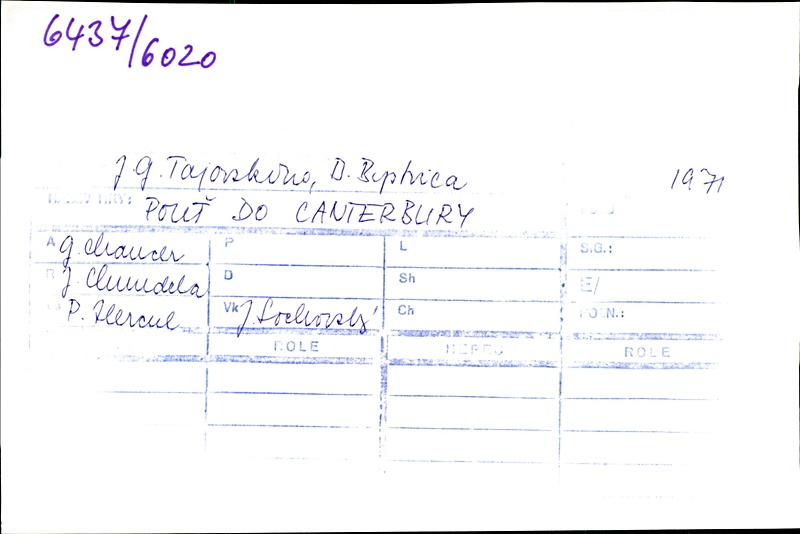 6437/6020
J. G. Tajovského, B. Bystrica 1971
NÁZOV HRY: POUŤ DO CANTERBURY
A G. Chaucer P L S.G.:
R J. Chundela D Sh E/
P. Hercul Vk J. Sochovský Ch POZN.:
ROLE HEREC ROLE